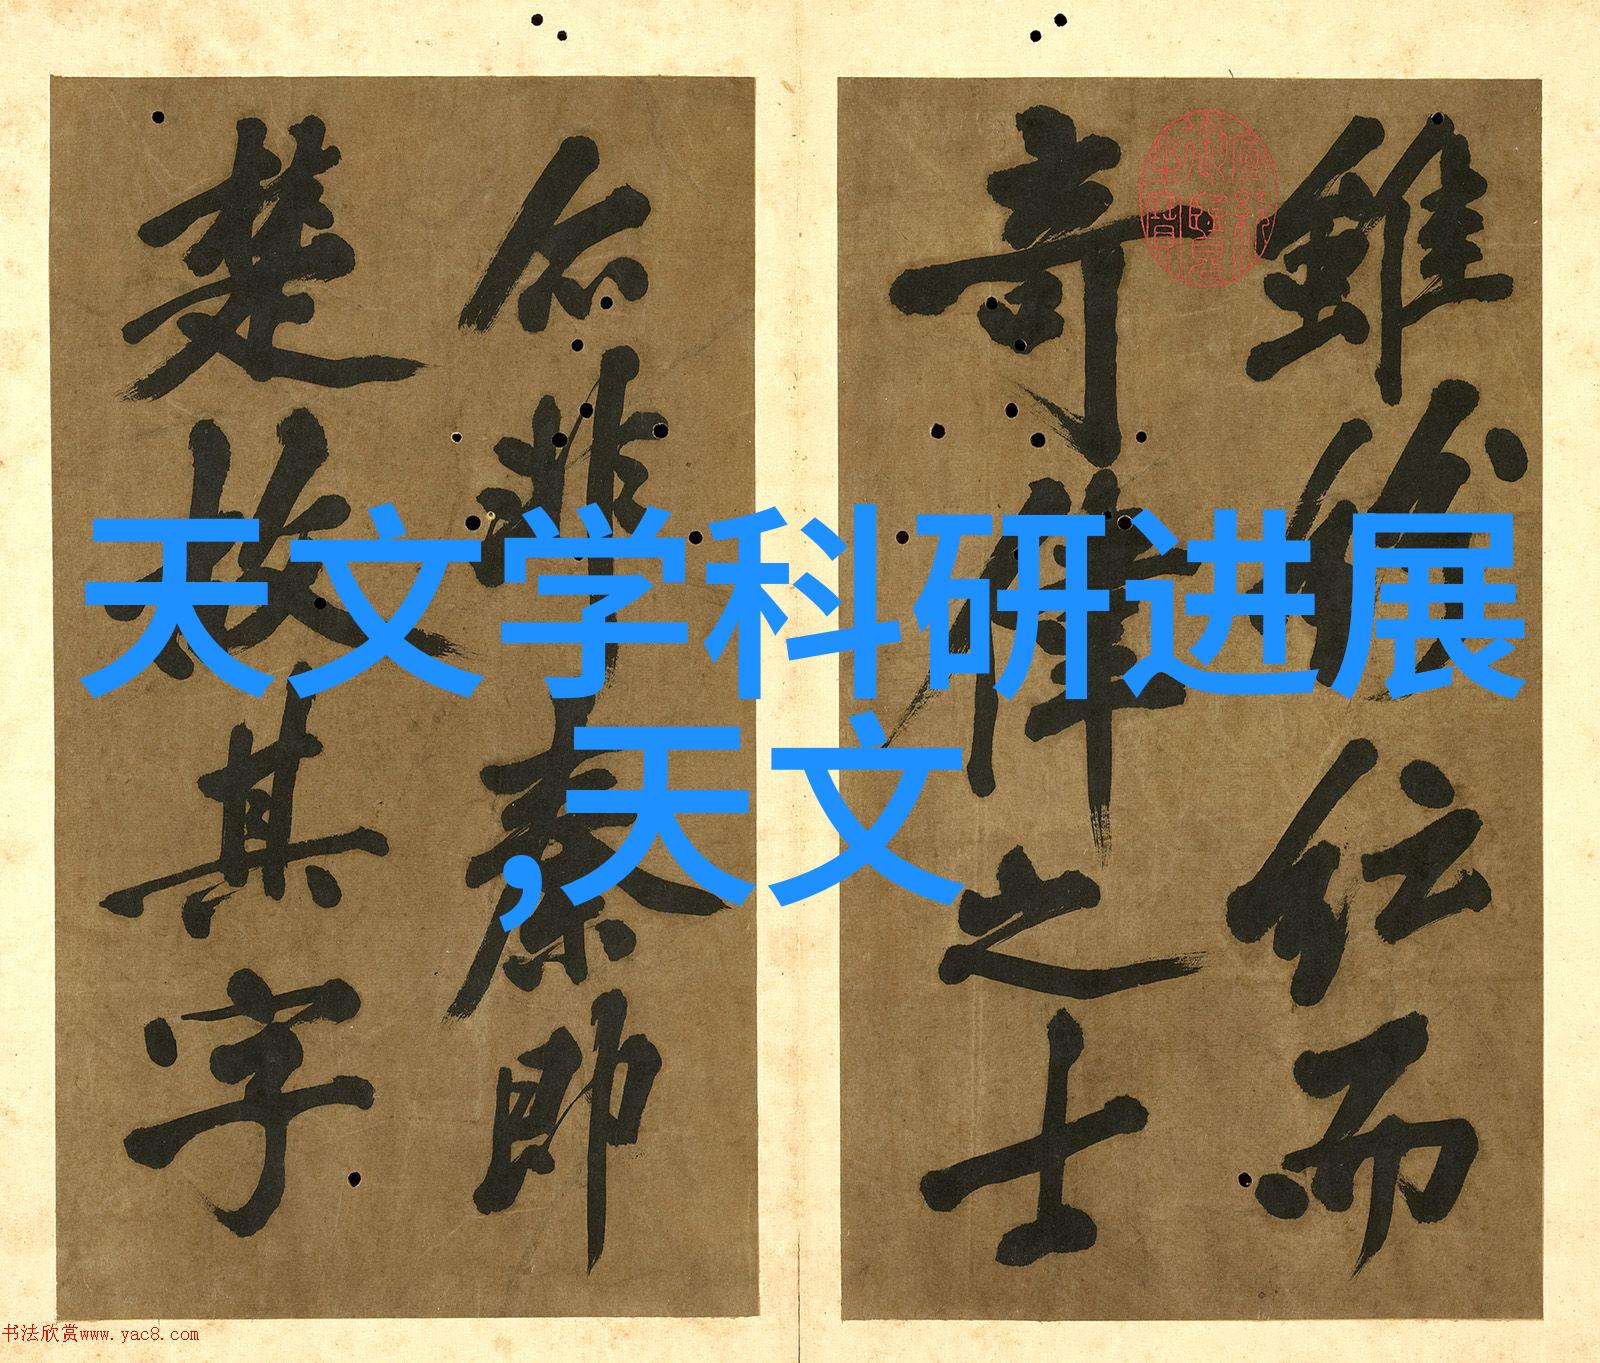 雖 而
奇偉之士
非秦即
楚故其字
天文学科研进展
,天文
书法欣赏www.yac8.com